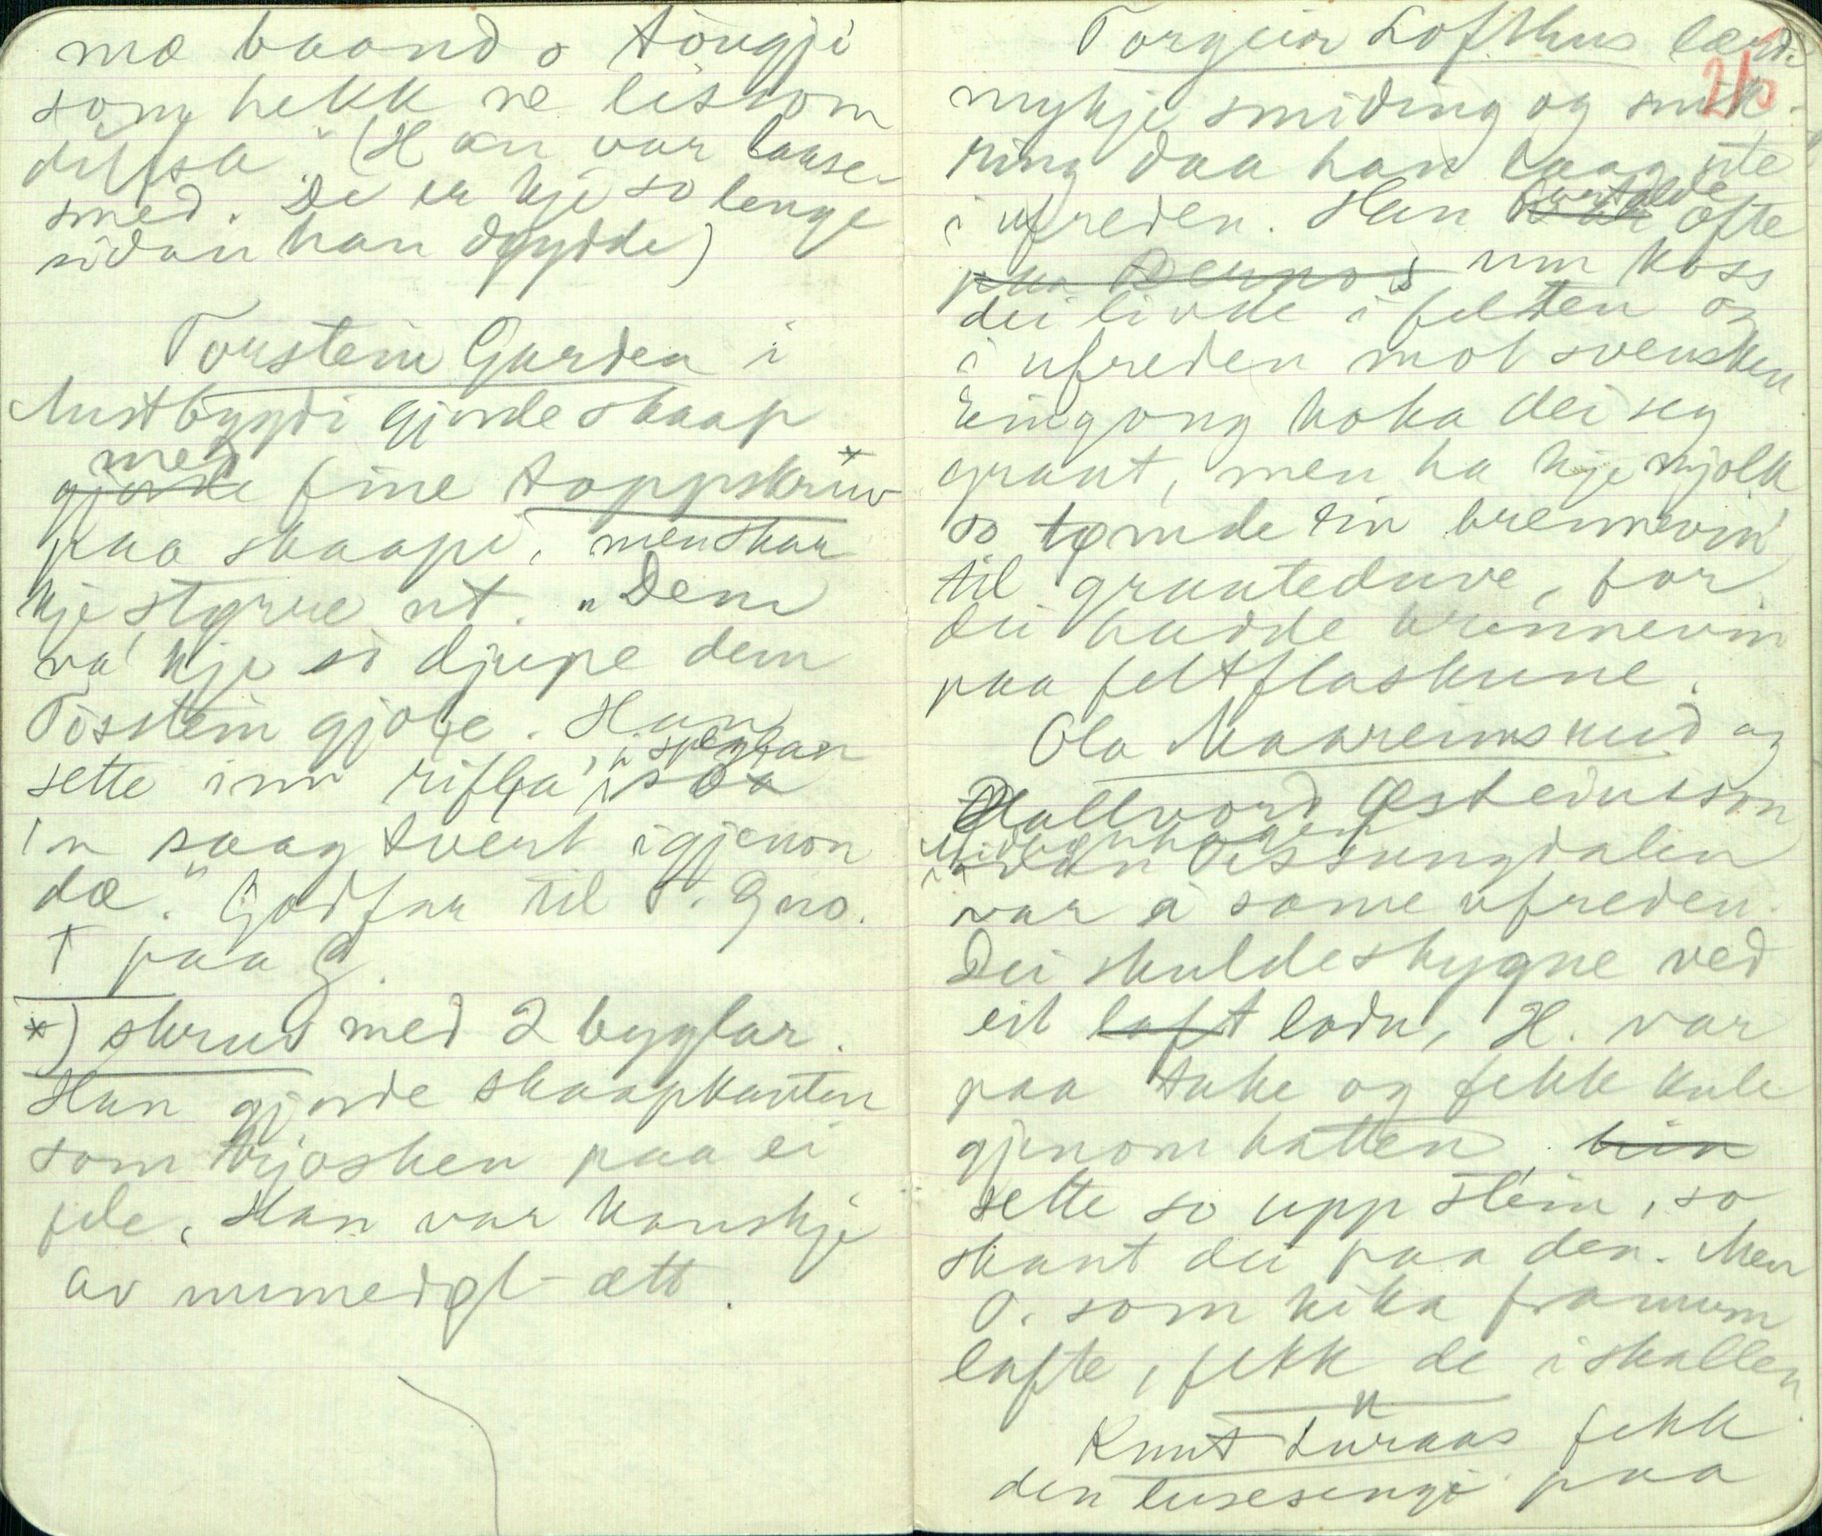 mæ baand o töugji
som hekk ne lissom
diffsa". (Han var laase-
smed. De er kje so lenge
sidan han døydde)
Torstein Garden i
Austbygdi gjorde skaap
med
gjorde fine toppskruv *
paa skaapi, men skar
kje styrre ut. "Dem
va' kje so djupe dem
Tosstein gjore. Han
sette inn rifla', speglar
i soa
in saag tvert igjenon
dæ." Godfar til T. Gno.
† paa G.
*) skruv med 2 byglar.
Han gjorde skaapkanten
som kjosken paa ei
fele. Han var kanskje
av numedøl-ætt.
Torgeir Lofthus lærde
215
mykje smiding og snik-
ring daa han laag ute
i ufreden. Han fortalde ofte
um koss
dei livde i felten og
i ufreden mot svensken
Eingong koka dei seg
graut, men ha kje mjølk
so tømde ein brennevin
til grauteduve, for
dei hadde brennevin
paa feltflaskune.
Ola Maareimsrud og
Hallvord Østeinsson
Vessungdalen
var i same ufreden.
Dei skulde skygne ved
eit laft lodu, H. var
paa take og fekk kule
gjenom hatten, hin
sette so upp stein, so
skaut dei paa den. Men
O. som kika framum
lafte, fekk de i skallen.
Knut Luraas fekk
den lusesengi paa